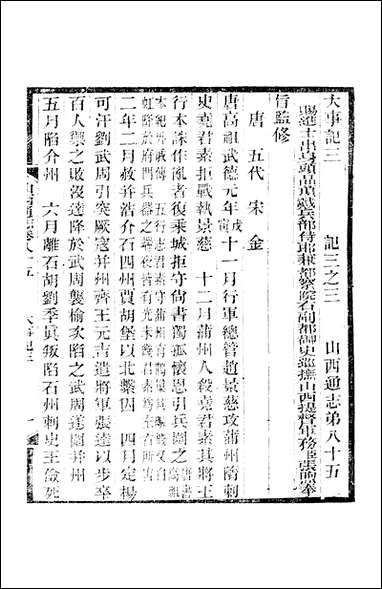 大事記三　記三之三　山西通志第八十五
賜進士出身頭品頂戴兵部侍郎兼都察院右副都御史巡撫山西提督軍務臣張煦奉
旨監修
唐　五代　宋　金
唐高祖武德元年戊寅十一月行軍總管趙景慈攻蒲州隋刺
史堯君素拒戰執景慈　十二月蒲州人殺堯君素其將王
行本誅作亂者復乘城拒守尚書獨孤懷恩引兵圍之
二年二月赦并浩介石四州賈胡堡以北繫囚　四月定楊
可汗劉武周引突厥寇并州齊王元吉遣將軍張達以步卒
百人禦之敗沒達降於武周襲榆次陷之武周遂圍并州
五月陷介州　六月離石胡劉季眞叛陷石州刺史王儉死